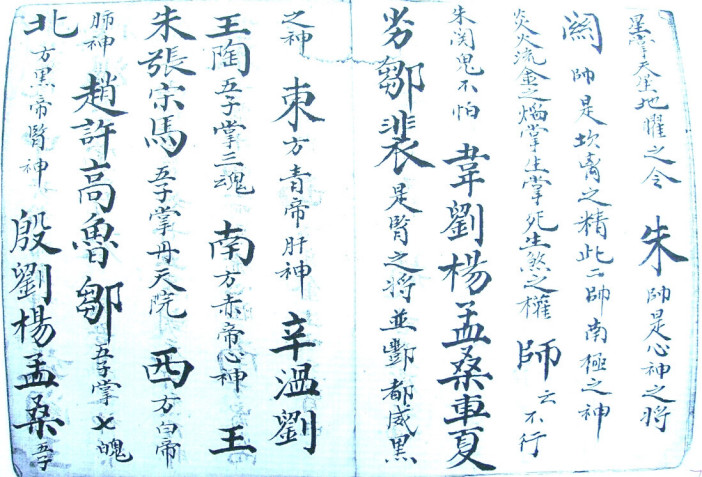 星掌天生地曜之令 朱帥是心神之將
關帥是坎腎之精此二帥南極之神
炎火流金之燭掌生掌死生煞之權 師云不行
朱関鬼不怕 韋劉楊孟桑車夏
労鄒裴是腎之将並酆都威黒
之神 東方青帝肝神 辛温劉
王陶五子掌三魂 南方赤帝心神 王
朱張宋馬五子掌丹天院 西方白帝
肺神 趙許高魯鄒五子掌七魄
北方黒帝腎神 殷劉楊孟桑五子